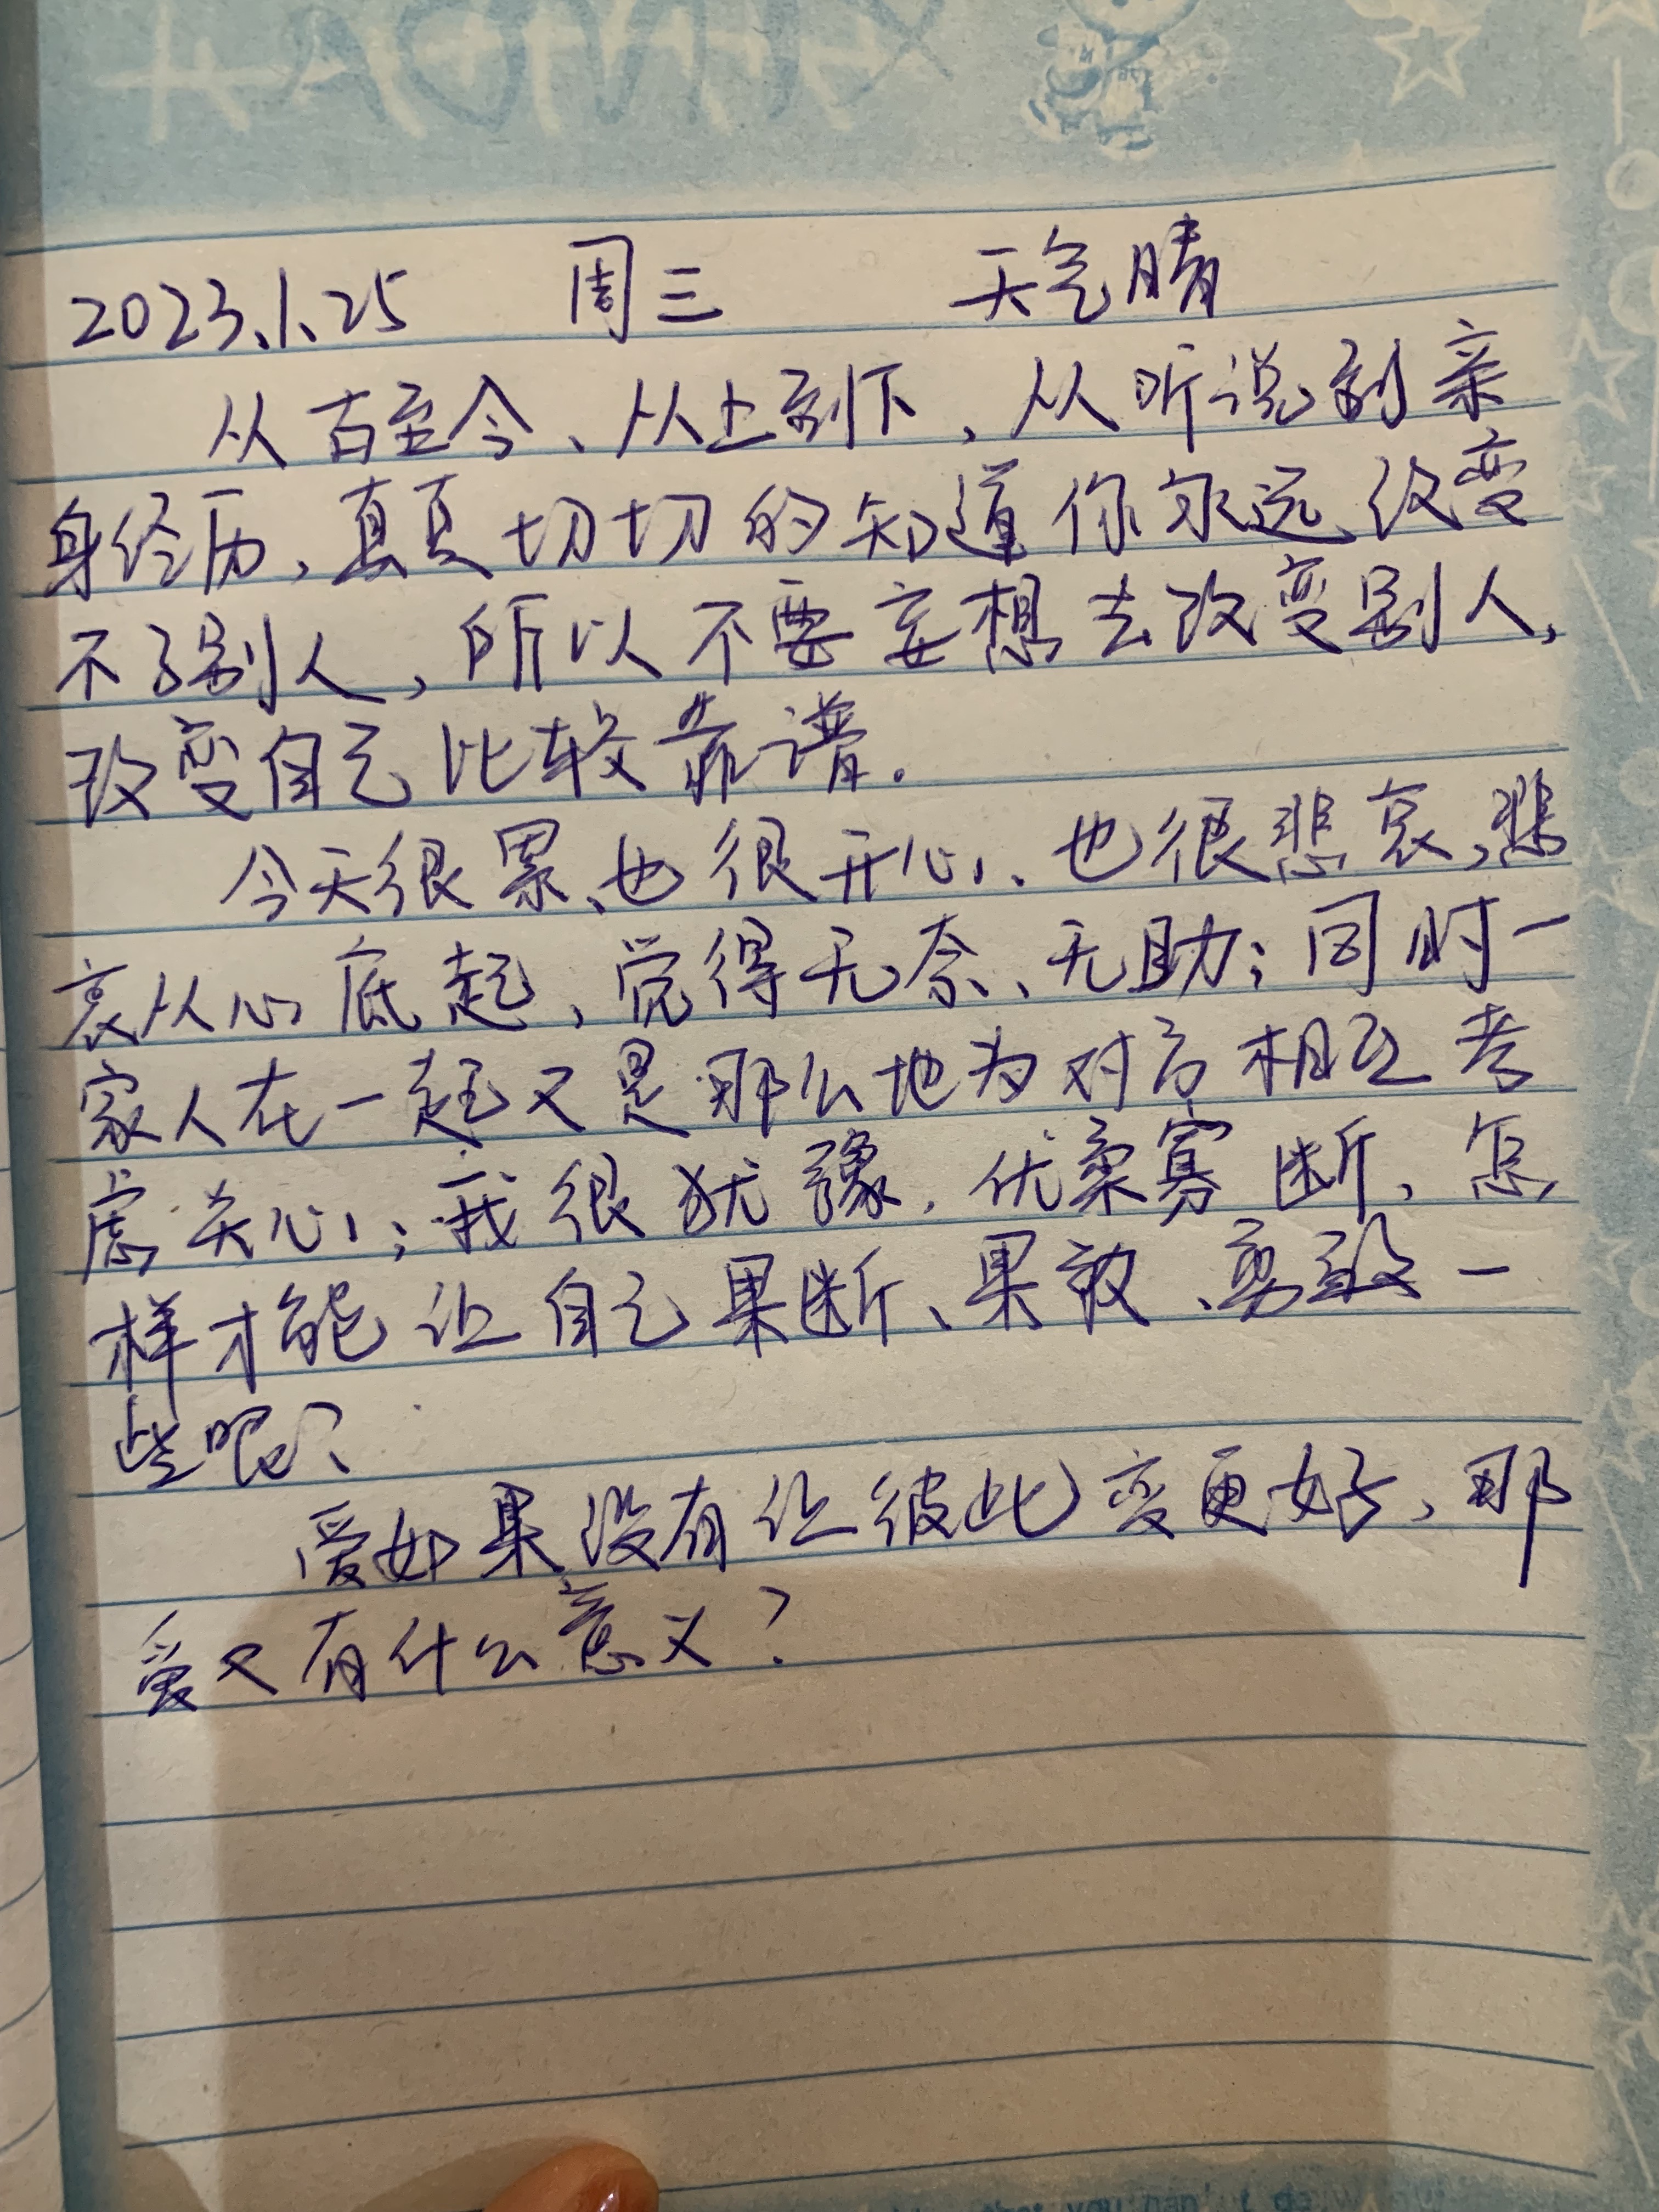 2023.1.25 周三 天气晴
从古至今、从上到下，从听说到亲
身经历，真真切切的知道你永远改变
不了别人，所以不要妄想去改变别人，
改变自己比较靠谱。
今天很累、也很开心、也很悲哀，悲
哀从心底起，觉得无奈、无助；同时一
家人在一起又是那么地为对方相互考
虑关心；我很犹豫，优柔寡断，怎
样才能让自己果断、果敢、勇敢一
些呢？
爱如果没有让彼此变更好，那
爱又有什么意义？